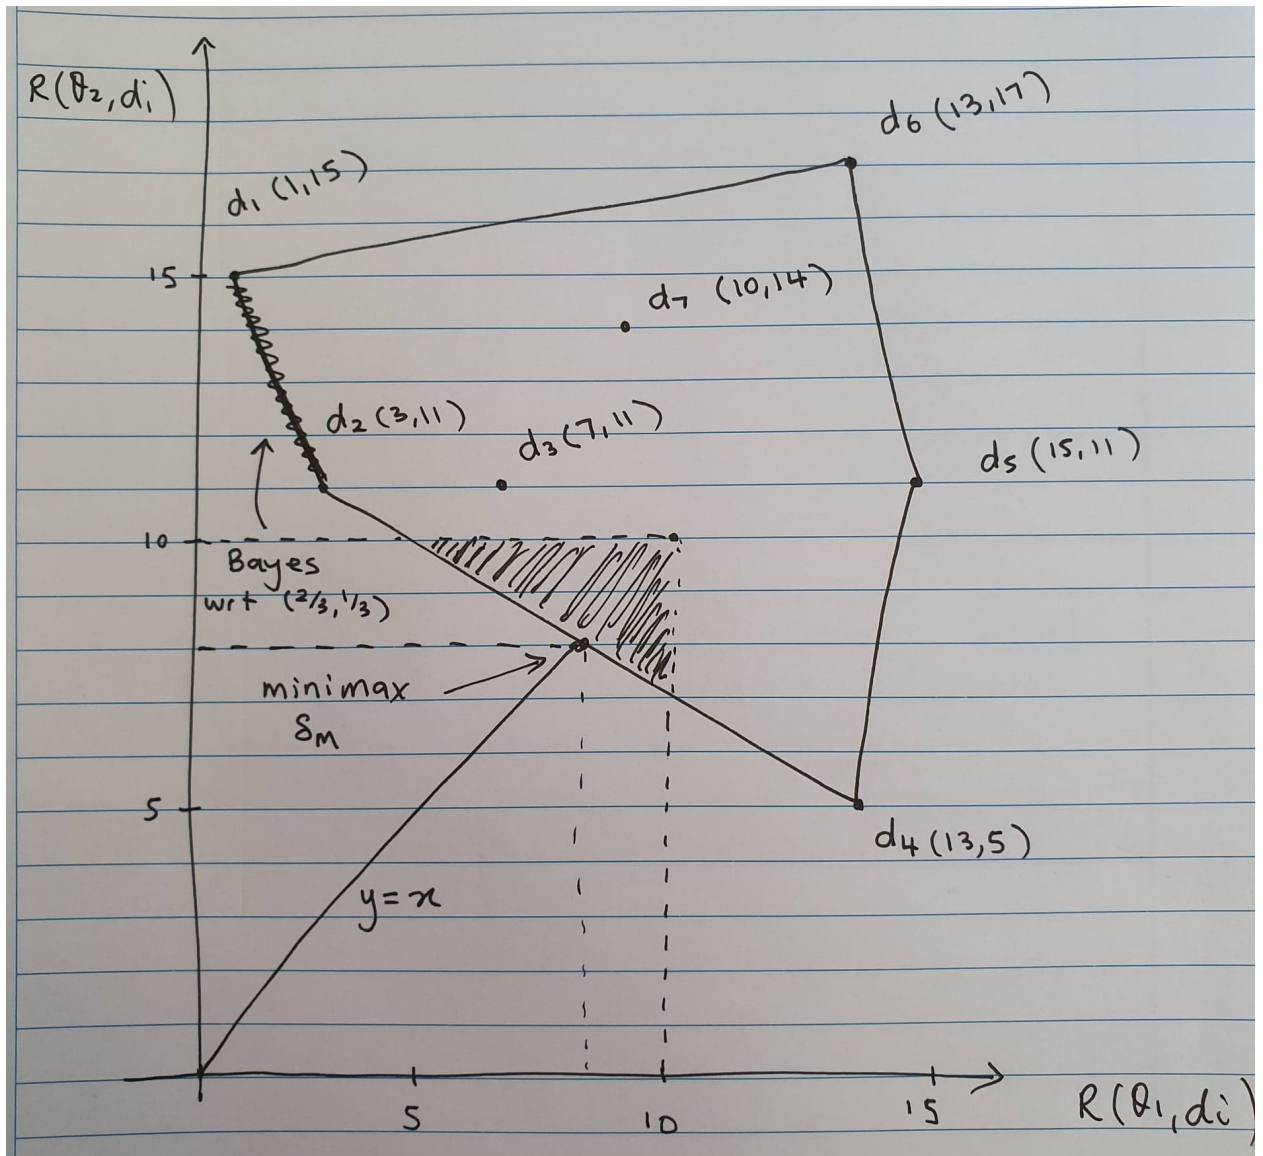 R(θ₂,dᵢ)
d₆ (13,17)
d₁ (1,15)
15
d₇ (10,14)
d₂ (3,11)
d₃ (7,11)
d₅ (15,11)
10
Bayes
wrt (2/3,1/3)
minimax
δM
5
d₄ (13,5)
y=x
5
10
15
R(θ₁,di)